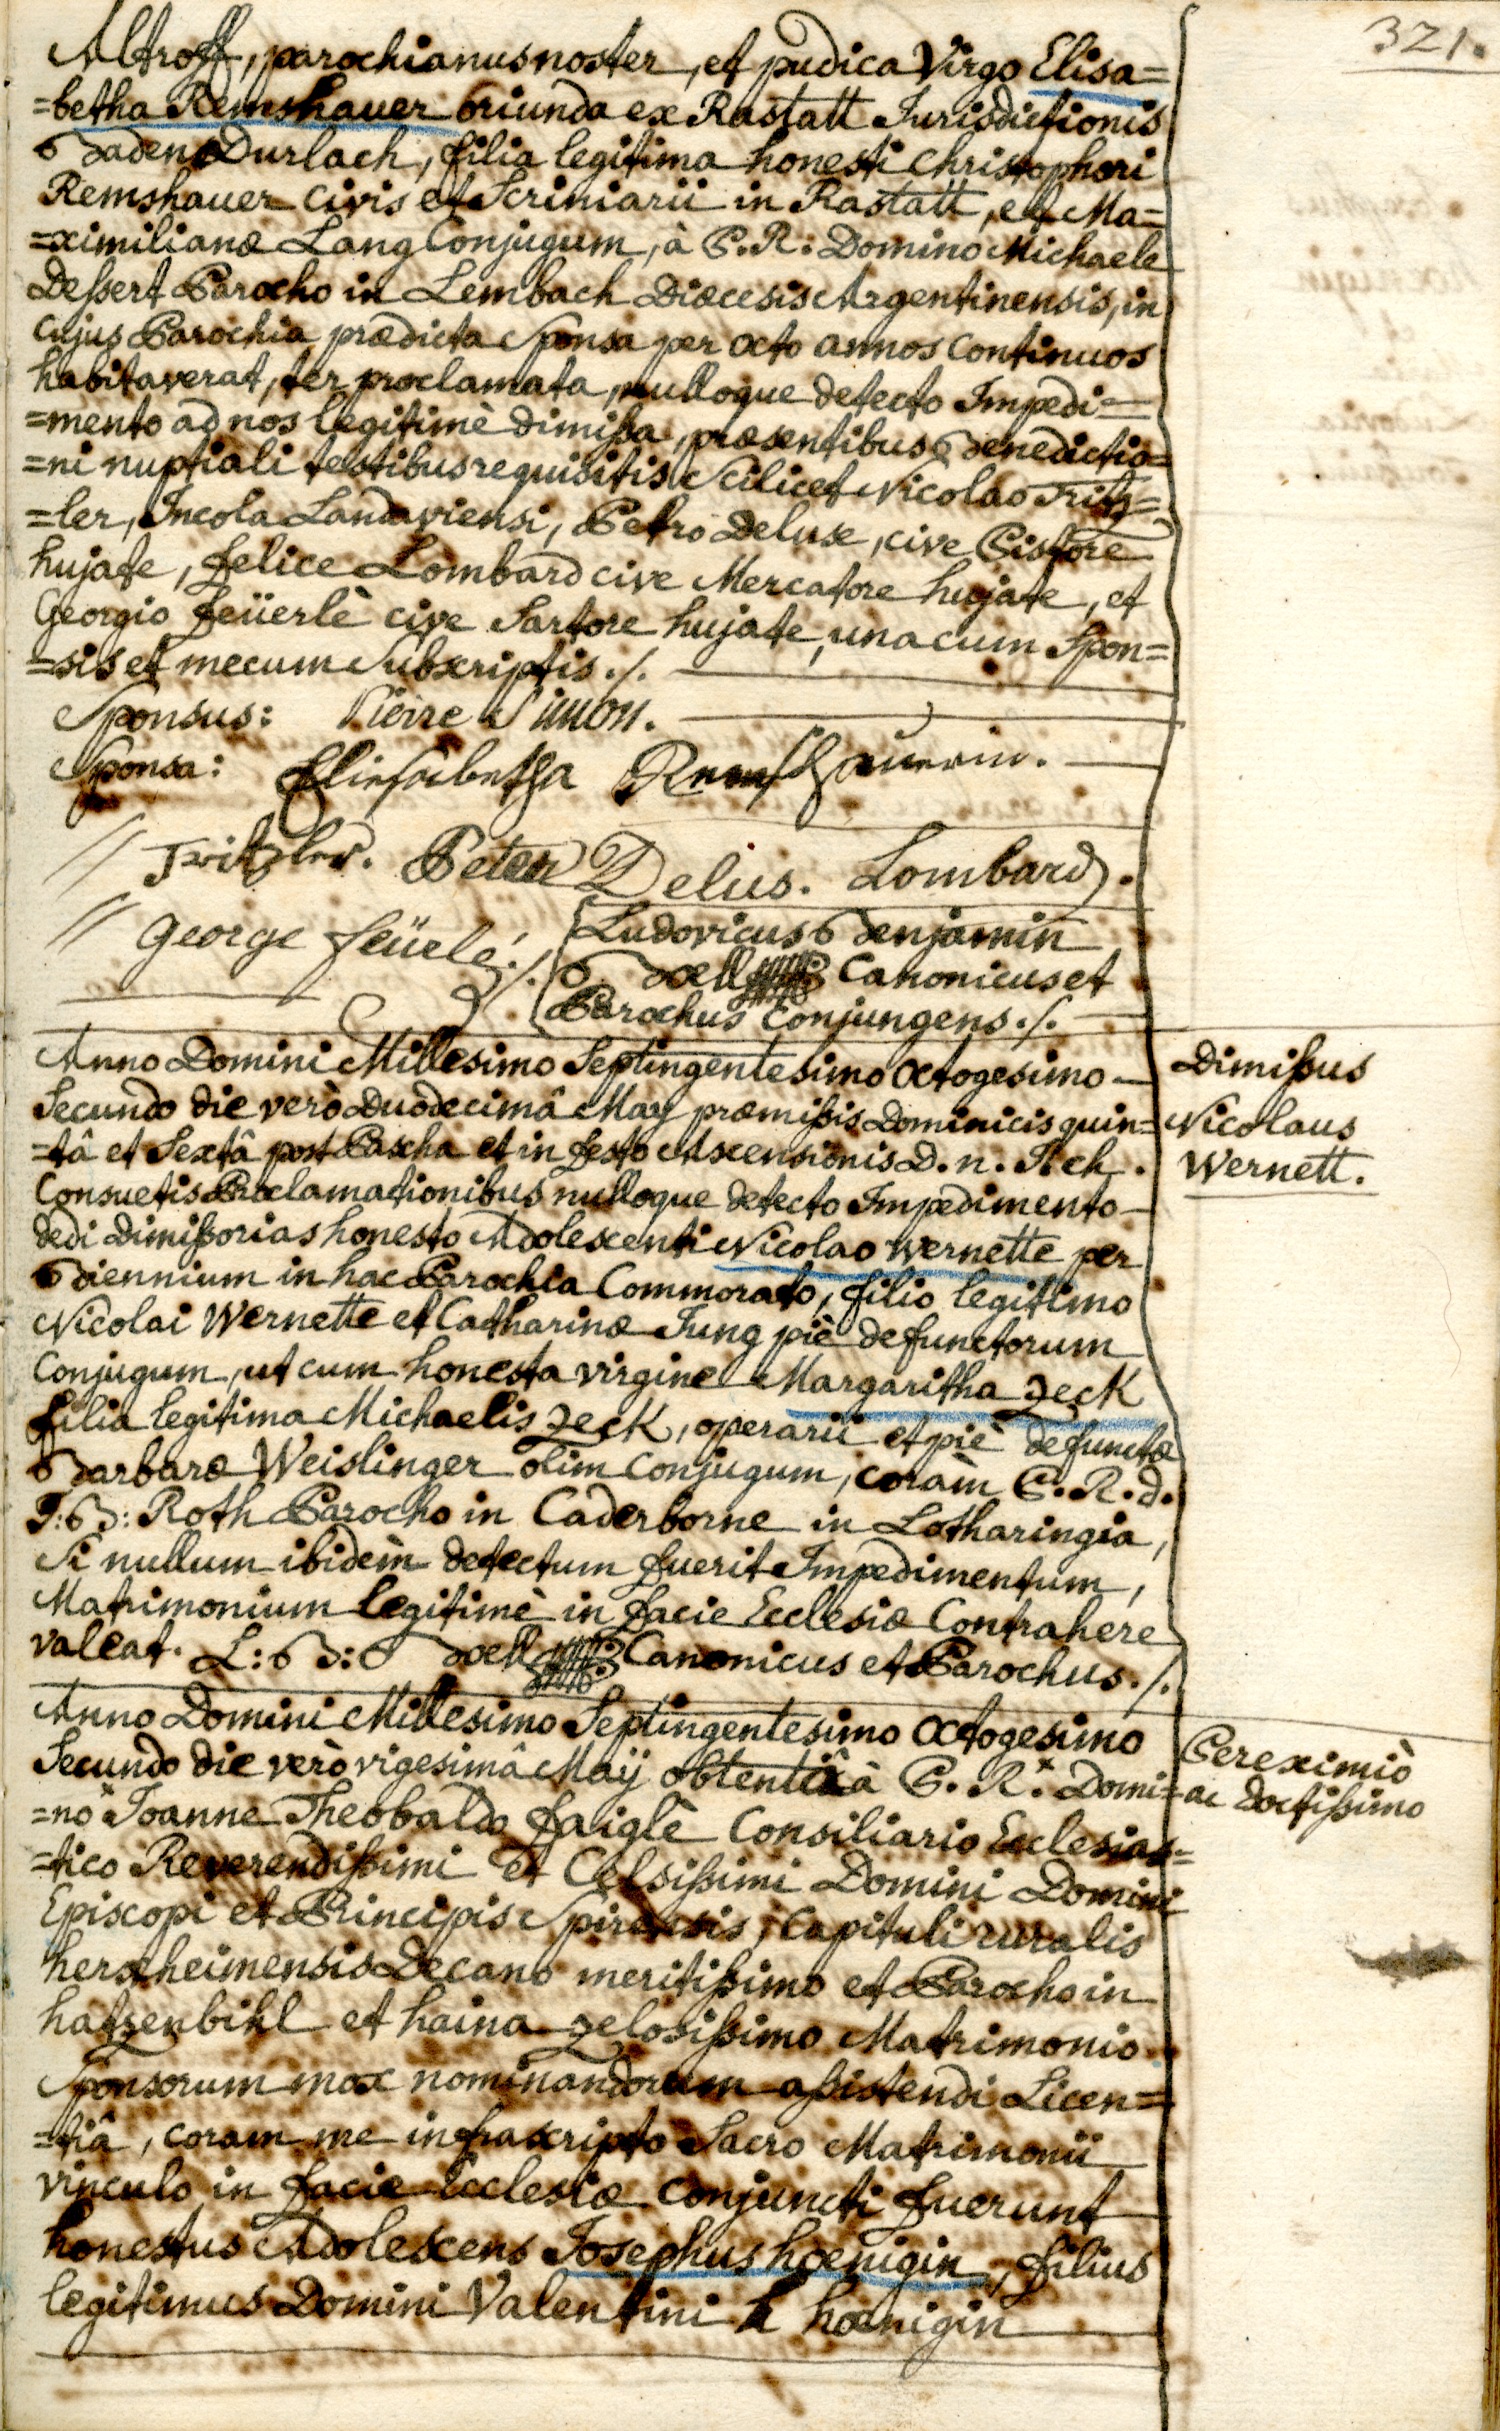 321.
Altroff, parochianus noster, et pudica Virgo Elisa=
=betha Remshauer oriunda ex Rastatt Jurisdictionis
Baden Durlach, filia legitima honesti Christophori
Remshauer Civis et Scriniarii in Rastatt, et Ma=
=ximilianæ Lang Conjugum, à P. R. Domino Michaele
Deßert Parocho in Lembach Diœcesis Argentinensis, in
Cujus Parochia prædicta Sponsa per octo annos Continuos
habitaverat, ter proclamata, nulloque detecto Impedi=
=mento ad nos legitimè dimißa, præsentibus Benedictio=
=ni nuptiali testibus requisitis Scilicet Nicolao Fritz=
=ler, Incola Landaviensi, Petro Deluse, cive Pistore
hujate, felice Lombard cive Mercatore hujate, et
Georgio feüerlè cive Sartore hujate, una cum Spon=
=sis et mecum Subscriptis ./.
Sponsus: Pierre Simon.
Sponsa: Elisabetha Remshauerin.
// Fritzler. Peter Delus. Lombard.
// George feüelé ./. Ludovicus Benjamin
Boell Canonicus et
Parochus Conjungens ./.
Anno Domini Millesimo Septingentesimo Octogesimo
Secundo die verò Duodecimâ May præmißis Dominicis quin=
=tâ et Sextâ post Pascha et in festo Ascensionis D. n. J. Ch.
Consuetis Proclamationibus nulloque detecto Impedimento
dedi Dimißorias honesto Adolescenti Nicolao Wernette per
Biennium in hac Parochia Commorato, filio legitimo
Nicolai Wernette et Catharinæ Jung piè defunctorum
Conjugum, ut cum honesta virgine Margaritha Zeck
filia legitima Michaelis Zeck, operarii et piè defunctæ
Barbaræ Weislinger olim Conjugum, coràm P. R. d.
J: B: Roth Parocho in Caderborne in Lotharingia,
Si nullum ibidèm detectum fuerit Impedimentum,
Matrimonium legitimè in facie Ecclesiæ Contrahere
valeat. L: B: Boell Canonicus et Parochus ./.
Dimißus
Nicolaus
Wernett.
Anno Domini Millesimo Septingentesimo Octogesimo
Secundo die verò vigesimâ Maÿ obtentâ à P. R.* Domi=
=no* Joanne Theobaldo faiglè Consiliario Ecclesias=
=tico Reverendißimi et Celsißimi Domini Domini
Episcopi et Principis Spirensis, Capituli ruralis
herxheimensis Decano meritißimo et Parocho in
hatzenbihl et haina zelosißimo Matrimonio
Sponsorum mox nominandorum aßistendi Licen=
=tiâ, coram me infrascripto Sacro Matrimonii
vinculo in facie Ecclesiæ Conjuncti fuerunt
honestus Adolescens Josephus hœnigin, filius
legitimus Domini Valentini hœnigin
Pereximiò
ac Doctißimo